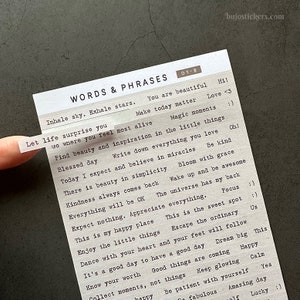 bujostickers.com
WORDS & PHRASES 01-B
Inhale sky, Exhale stars. You are beautiful Hi!
Let life surprise you Make today matter Love <3
Go where you feel most alive Magic moments :)
Find beauty and inspiration in the little things
Blessed day Write down everything you love Oh!
Today I expect and believe in miracles Be kind
There is beauty in simplicity Bloom with grace
Kindness always comes back Wake up and be awesome
Everything will be OK The universe has my back
Expect nothing. Appreciate everything. Focus :)
This is my happy place This is the sweet spot :)
Enjoy the little things Escape the ordinary Os
Dance with your heart and your feet will follow
It's a good day to have a good day Dream big This
Know your worth Good things are coming Happy
Collect moments, not things Keep glowing Calm
happy Be patient with yourself Yes
fabulous Amazing day